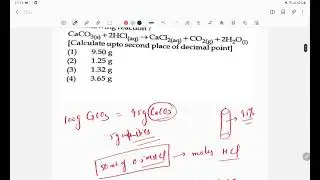 following reaction ?
CaCO3(s) + 2HCl(aq) → CaCl2(aq) + CO2(g) + 2H2O(l)
[Calculate upto second place of decimal point]
(1) 9.50 g
(2) 1.25 g
(3) 1.32 g
(4) 3.65 g
100g CaCO3 = 95g CaCO3
95%
5g impurities
50 ml of 0.5M HCl → moles HCl